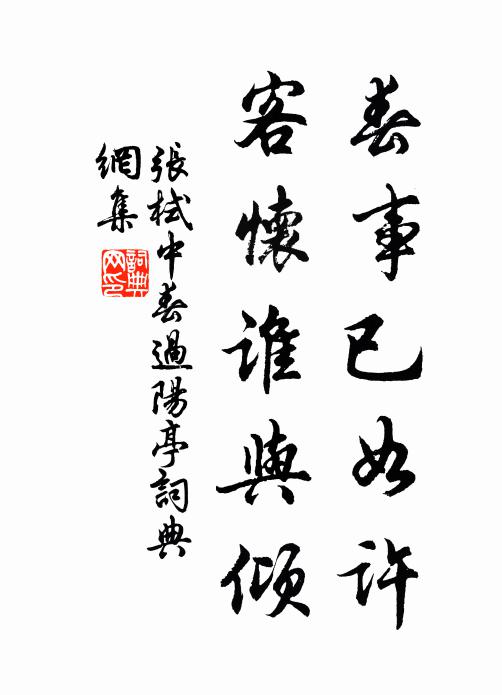 春事已如許
客懷誰與傾
張栻中春過陽亭詞典
網集
詞典网印